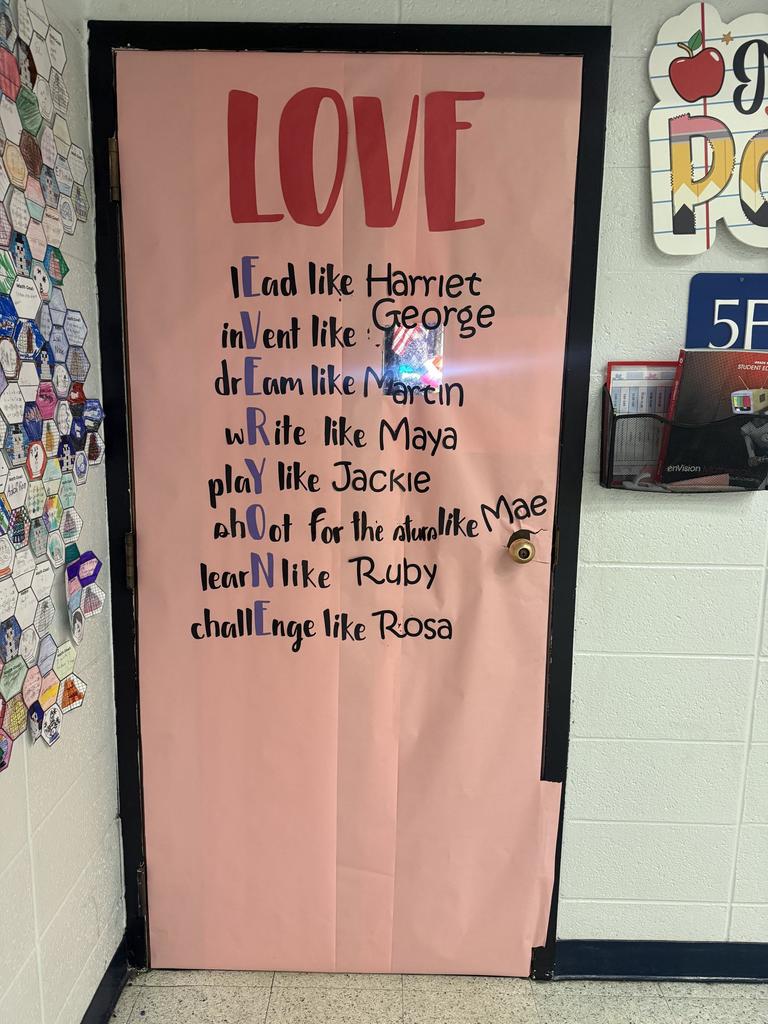 LOVE
lEad like Harriet
inVent like George
drEam like Martin
wRite like Maya
plaY like Jackie
shOot for the stars like Mae
learN like Ruby
challEnge like Rosa
5E
STUDENT
enVision